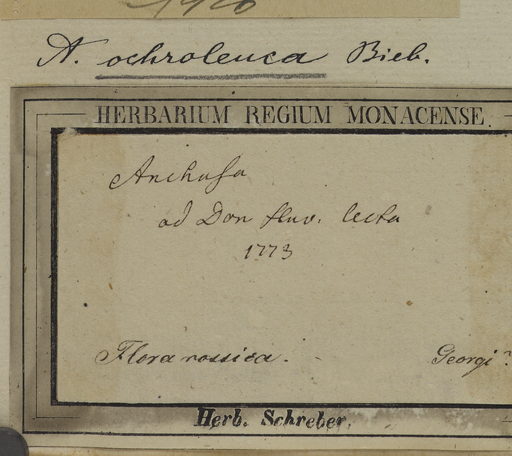 A. ochroleuca Bieb.
HERBARIUM REGIUM MONACENSE.
Anchusa
ad Don fluv. lecta
1773
Flora rossica.
Georgi
Herb. Schreber.